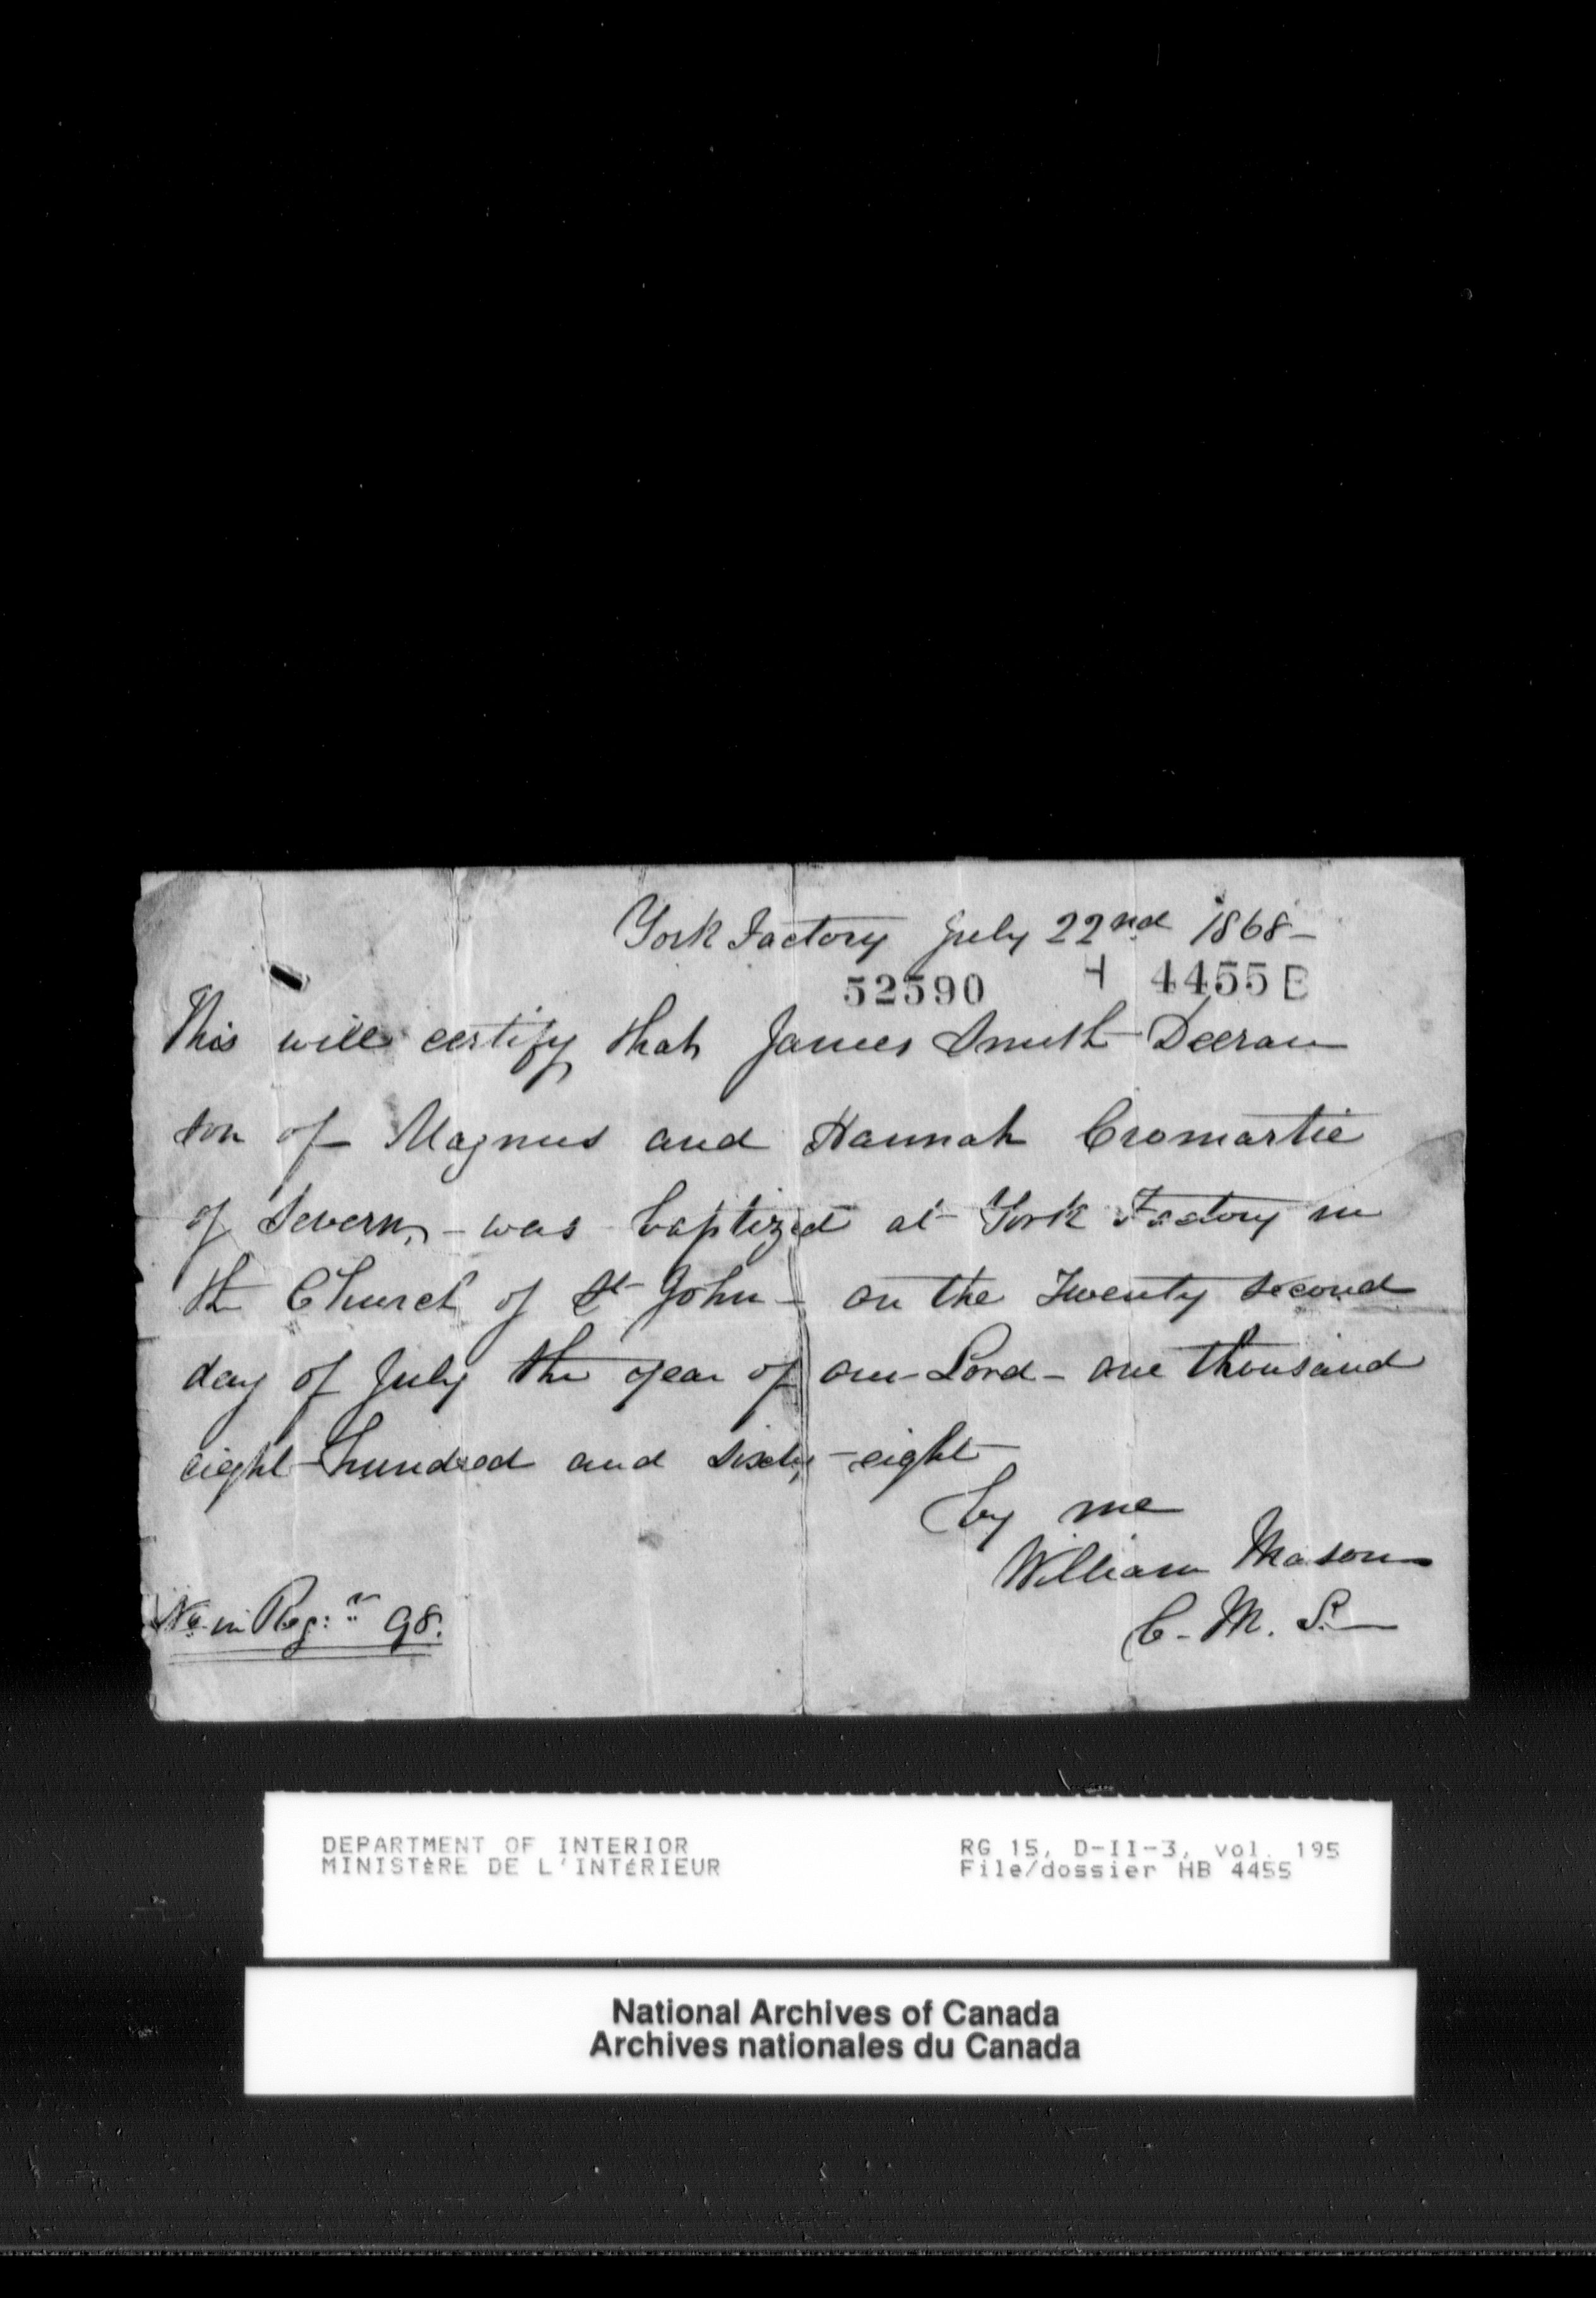 York Factory July 22nd 1868 –
52590 H 4455 B
This will certify that James Smith Deeran
son of Magnus and Hannah Cromartie
of Severn, – was baptized at York Factory in
the Church of St John – on the Twenty second
day of July the year of our Lord – one thousand
eight hundred and sixty – eight
by me
William Mason
C. M. S. –
No in Regr 98.
DEPARTMENT OF INTERIOR
MINISTÈRE DE L'INTÉRIEUR
RG 15, D-II-3, vol. 195
File/dossier HB 4455
National Archives of Canada
Archives nationales du Canada